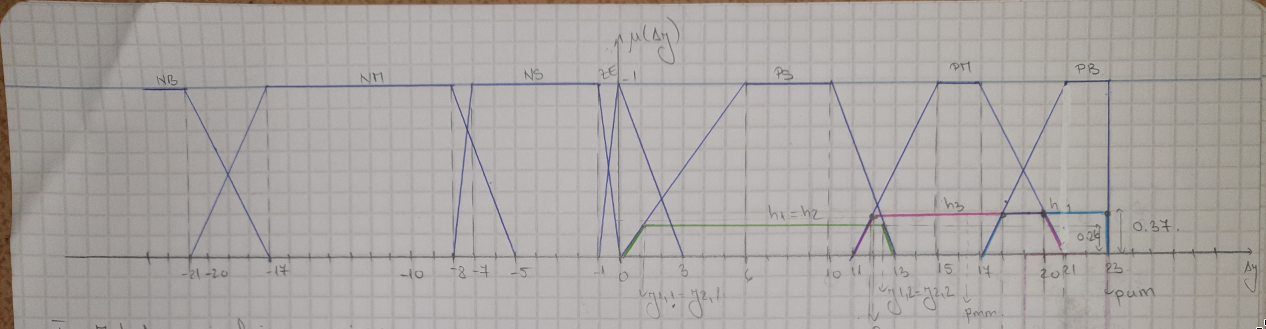 μ(Δy)
NB NM NS ZE 1 PS PM PB
h1 = h2 h3 h
0.26 0.37.
-21 -20 -17 -10 -8 -7 -5 -1 0 3 6 10 11 13 15 17 20 21 23 Δy
y1,1 = y2,1 y1,2 = y2,2 pmm. pum